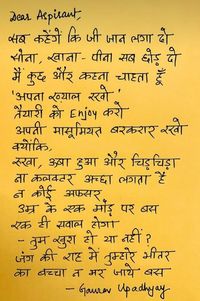 Dear Aspirant,
सब कहेंगे कि जी जान लगा दो
सोना, खाना-पीना सब छोड़ दो
मैं कुछ और कहना चाहता हूँ
'अपना ख्याल रखो'
तैयारी को Enjoy करो
अपनी मासूमियत बरकरार रखो
क्योंकि,
रूखा, ऊबा हुआ और चिड़चिड़ा
ना कलक्टर अच्छा लगता है
न कोई अफसर
उम्र के एक मोड़ पर बस
एक ही सवाल होगा
- तुम खुश हो या नहीं?
जंग की राह में तुम्हारे भीतर
का बच्चा न मर जाये बस
- Gaurav Upadhyay